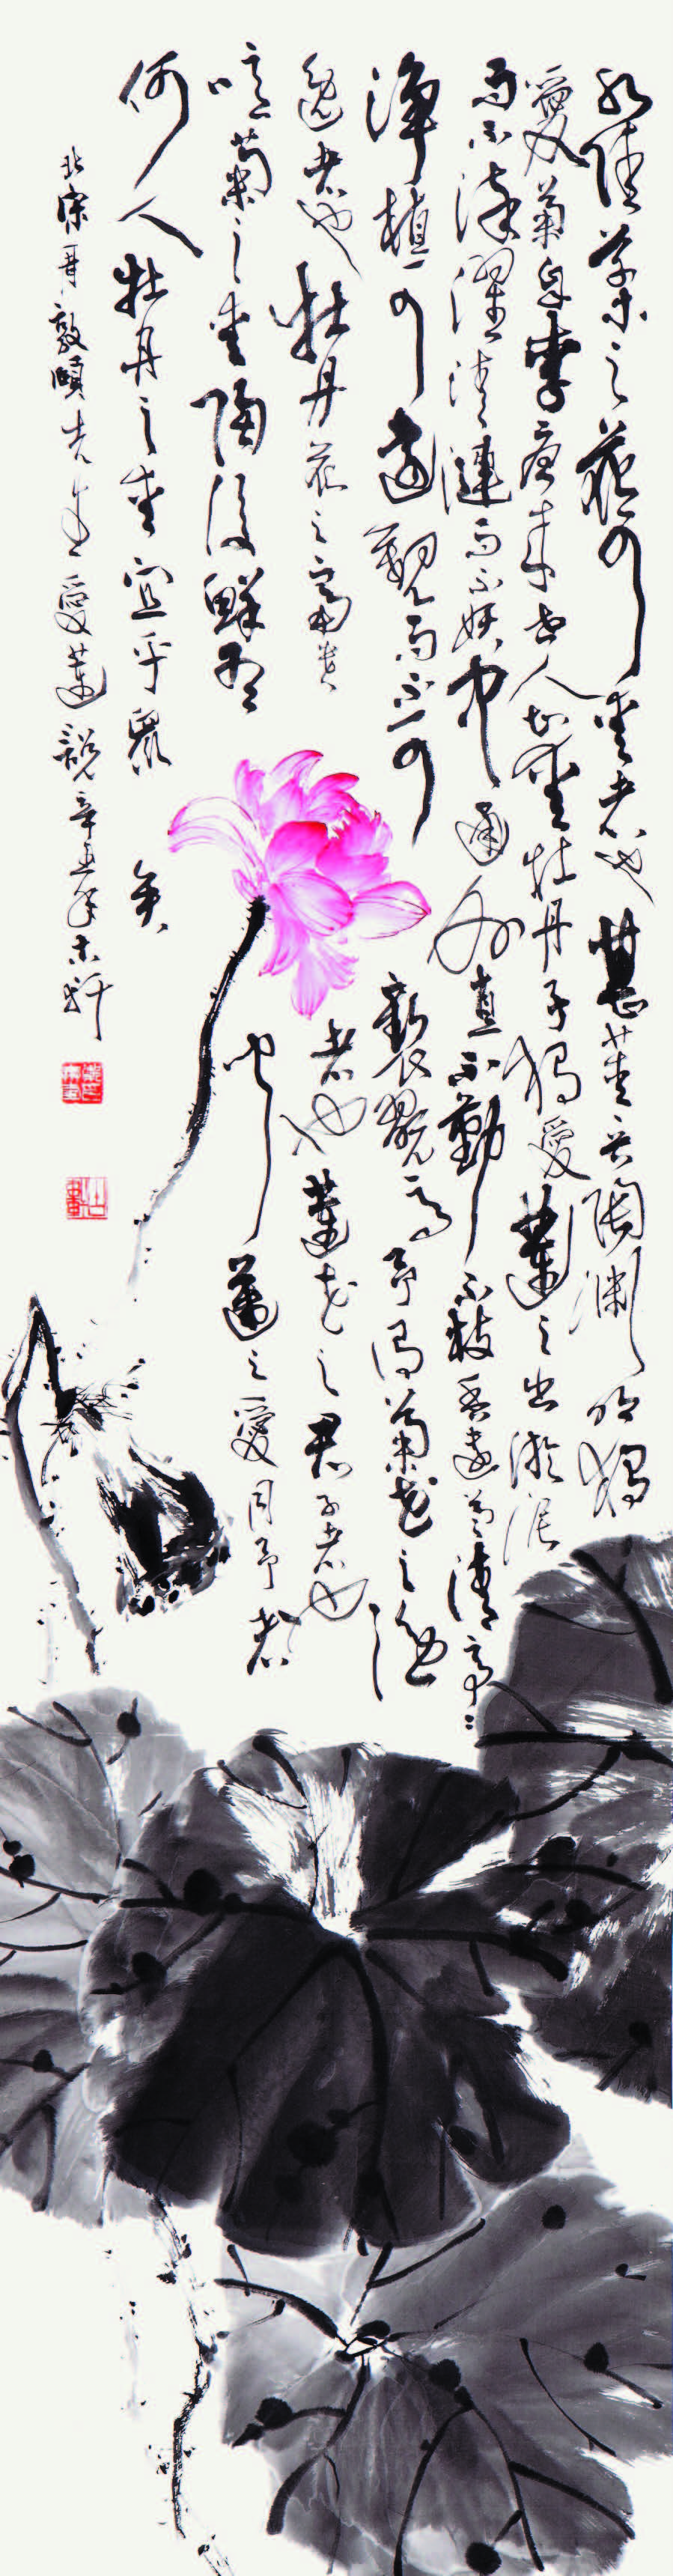 水陸草木之花可愛者也甚蕃晉陶淵明獨
愛菊自李唐来世人甚愛牡丹予獨愛蓮之出淤泥
而不染濯清漣而不妖中通外直不蔓不枝香遠益清亭亭
淨植可遠觀而不可褻翫焉予謂菊花之隱
逸者也牡丹花之富貴者也蓮花之君子者也
噫菊之愛陶後鮮有聞蓮之愛同予者
何人牡丹之愛宜乎眾矣
北宋周敦頤先生愛蓮說辛丑年木軒